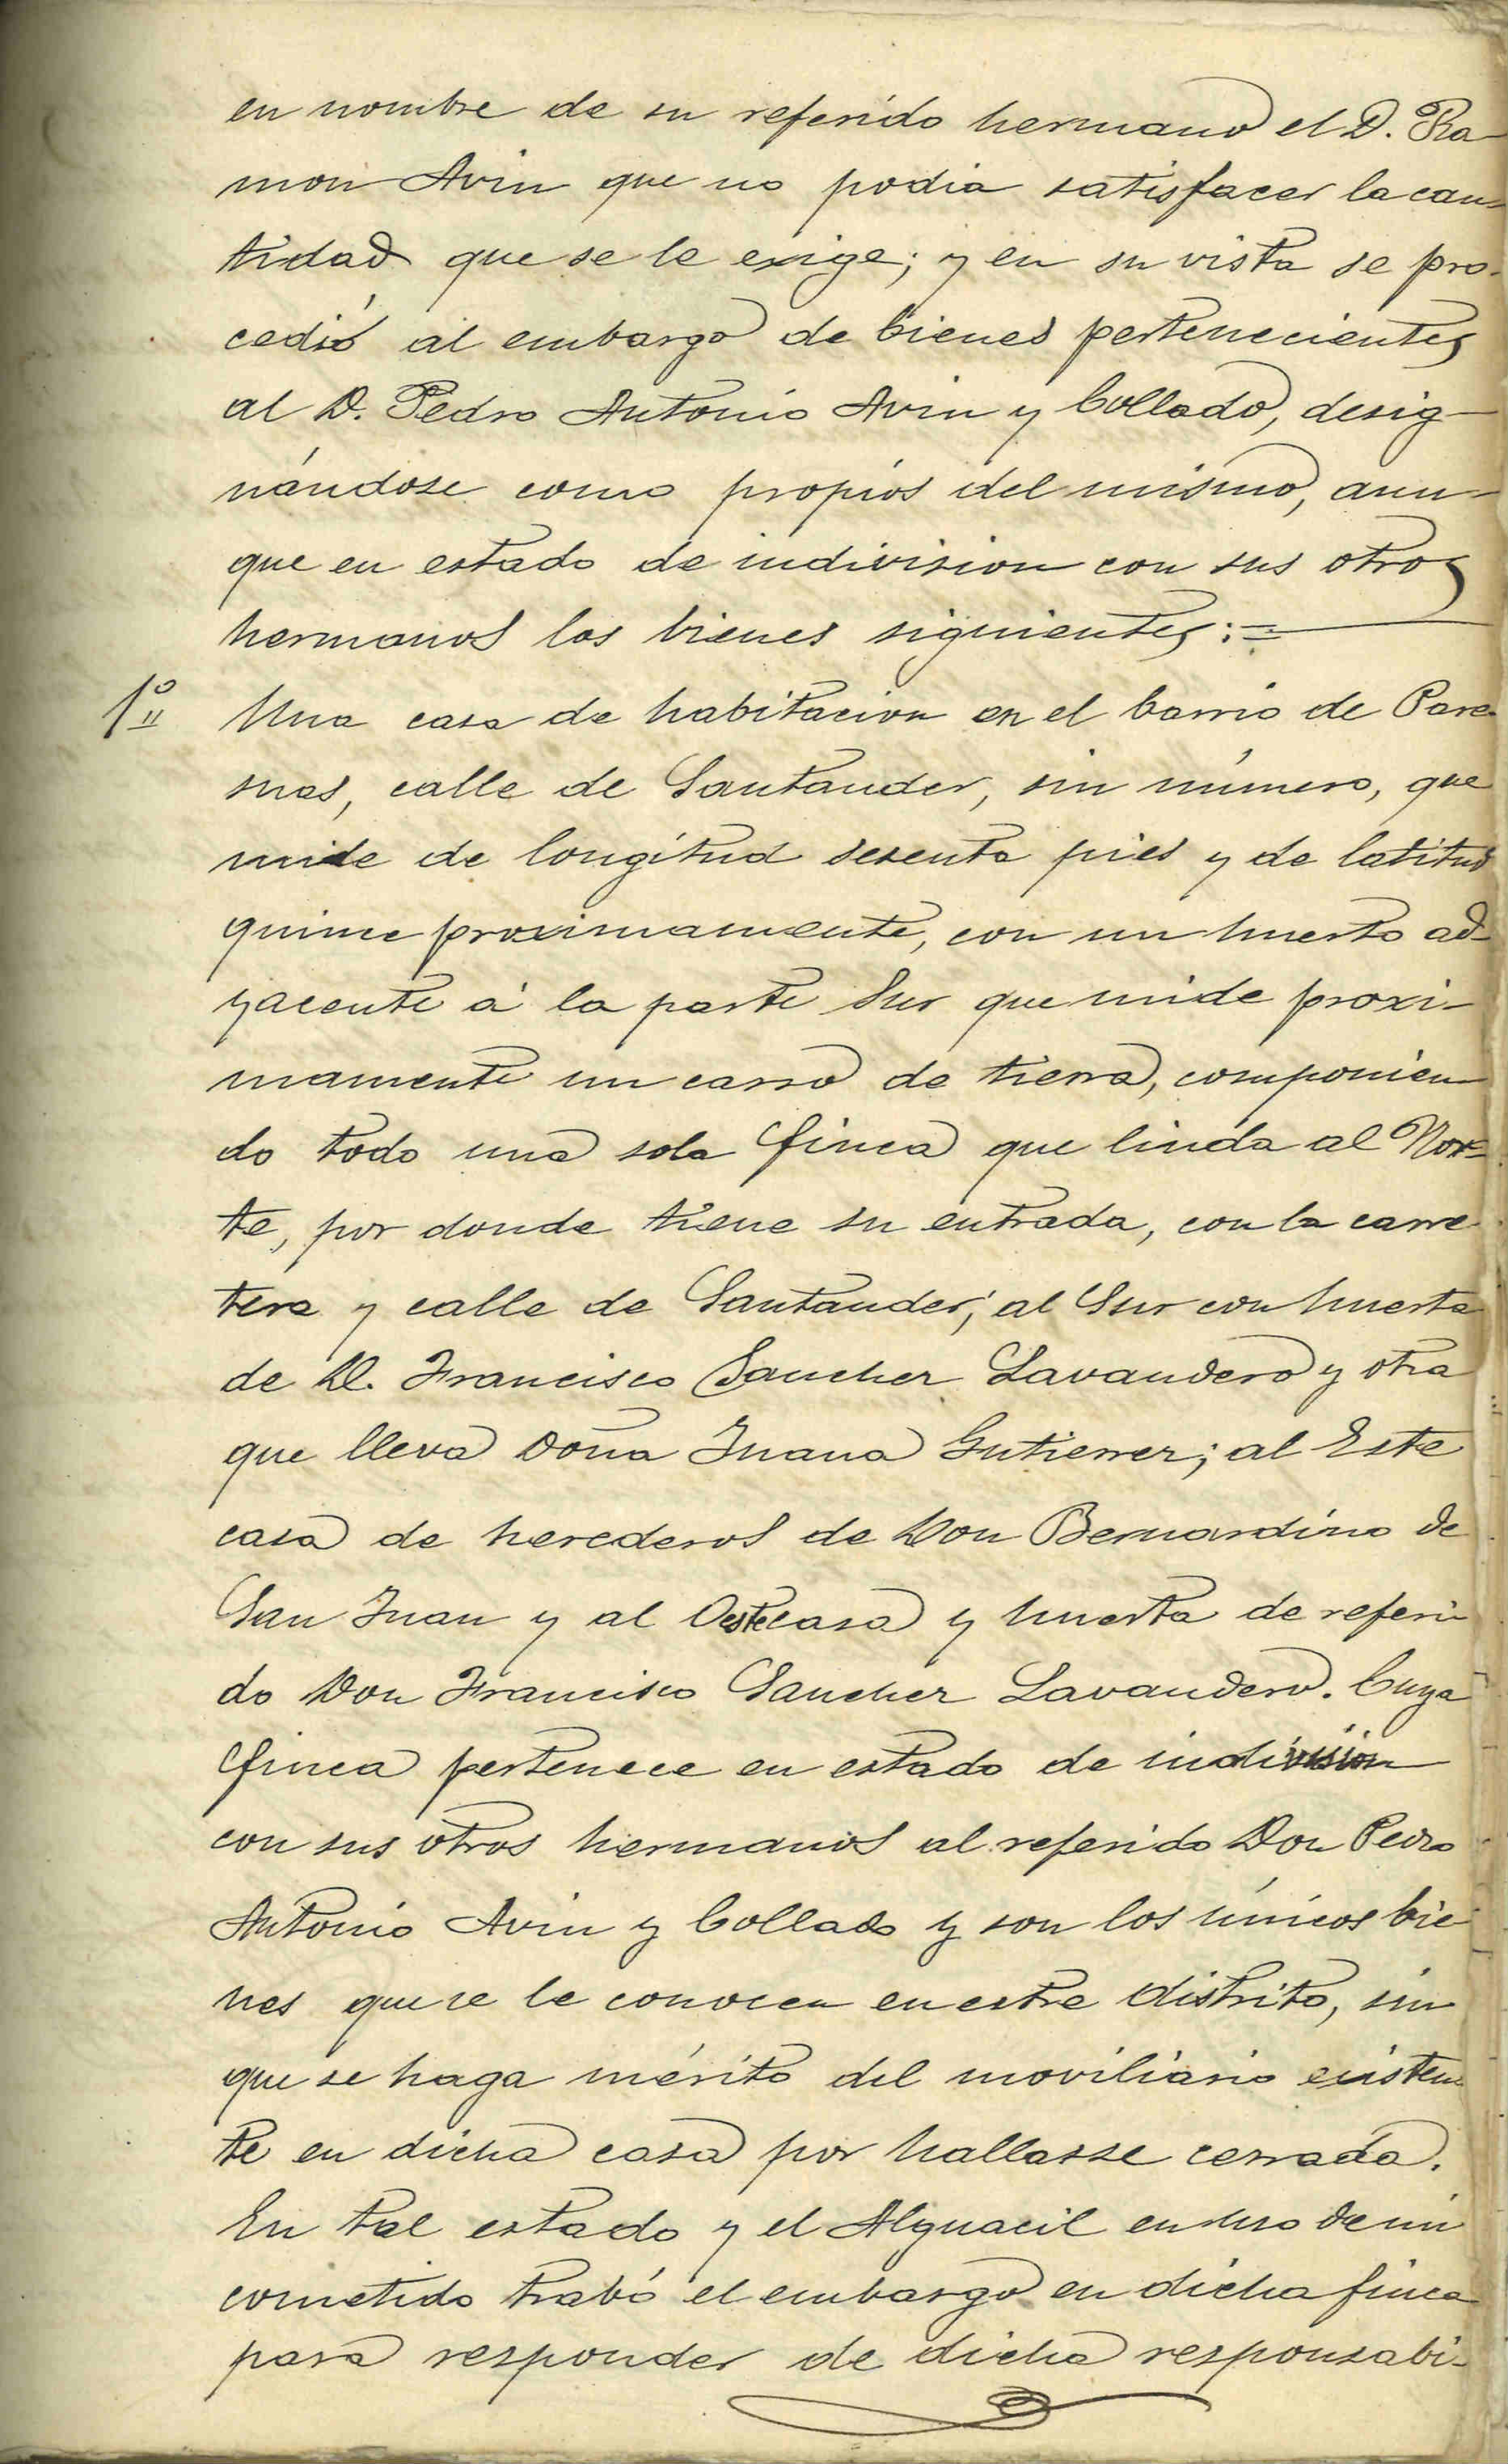 en nombre de su referido hermano el D. Ra-
mon Avin que no podia satisfacer la can-
tidad que se le exige; y en su vista se pro-
cedió al embargo de bienes pertenecientes
al D. Pedro Antonio Avin y Collado, desig-
nándose como propios del mismo, aun-
que en estado de indivision con sus otros
hermanos los bienes siguientes:=
1º Una casa de habitacion en el barrio de Pare-
snas, calle de Santander, sin número, que
mide de longitud sesenta pies y de latitud
quince proximamente, con un huerto ad-
yacente á la parte Sur que mide proxi-
mamente un carro de tierra, componien-
do todo una sola finca que linda al Nor-
te, por donde tiene su entrada, con la carre-
tera y calle de Santander; al Sur con huerta
de D. Francisco Sanchez Lavandero y otra
que lleva Doña Juana Gutierrez; al Este
casa de herederos de Don Bernardino de
San Juan y al Oeste casa y huerta de referi-
do Don Francisco Sanchez Lavandero. Cuya
finca pertenece en estado de indivision
con sus otros hermanos al referido Don Pedro
Antonio Avin y Collado y son los únicos bie-
nes que se le conocen en estre distrito, sin
que se haga mérito del moviliario existen-
te en dicha casa por hallarse cerrada.
En tal estado y el Alguacil en uso de mi
cometido trabó el embargo en dicha finca
para responder de dicha responsabi-